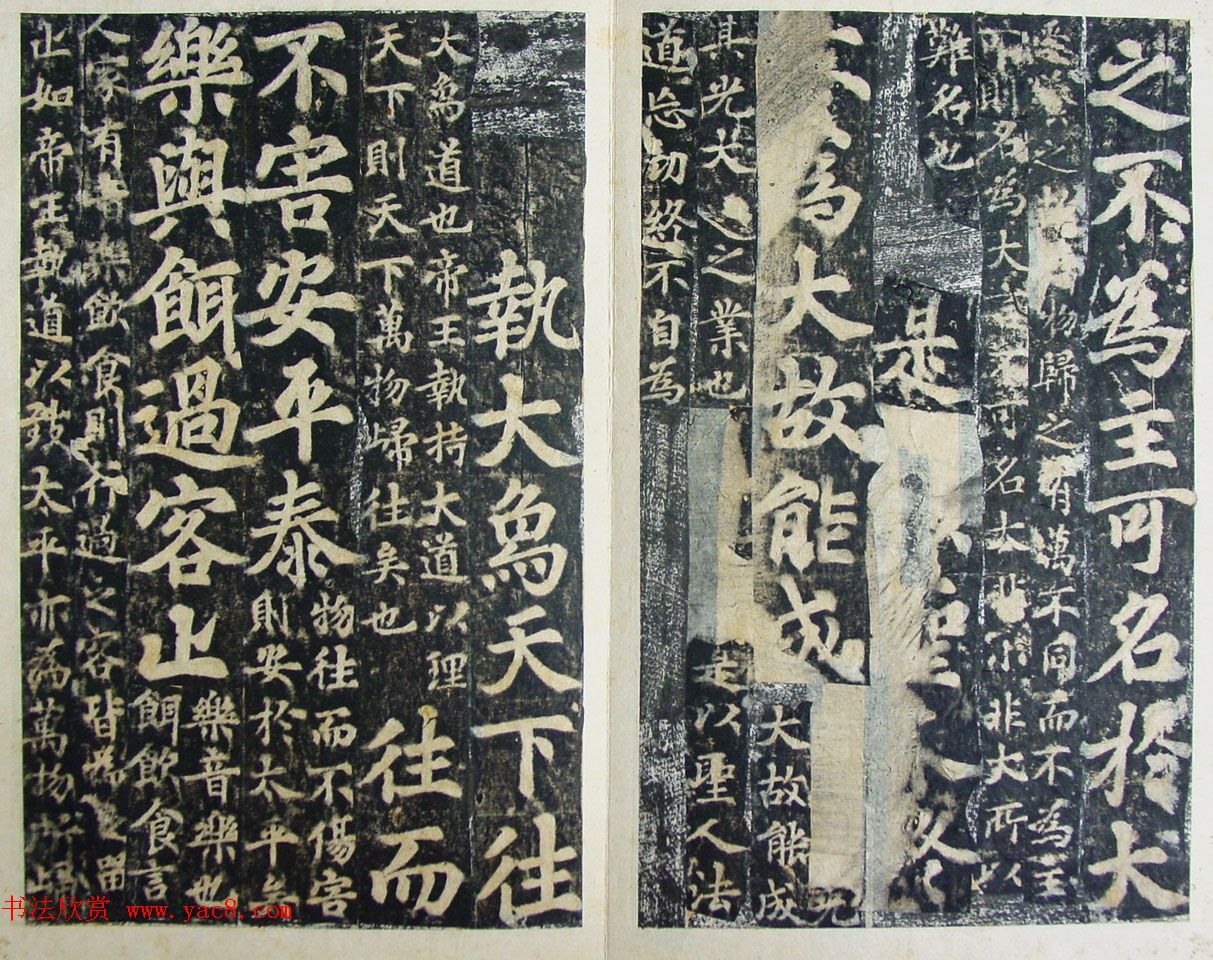 之不為主可名於大
之物歸之有萬不同而不為主
則名為大不可名大非小非大所以
難名也
是聖
為大故能成
大故能成
是以聖人法
其光大之業也
道忘功終不自為
執大爲天下往
大爲道也帝王執持大道以理
天下則天下萬物歸往矣也
往而
不害安平泰
物往而不傷害
則安於太平
樂與餌過客止
樂音樂也
餌飲食言
人家有音樂飲食則行過之客皆為之留
止如帝王執道以致太平亦為萬物所歸
书法欣赏 www.yac8.com